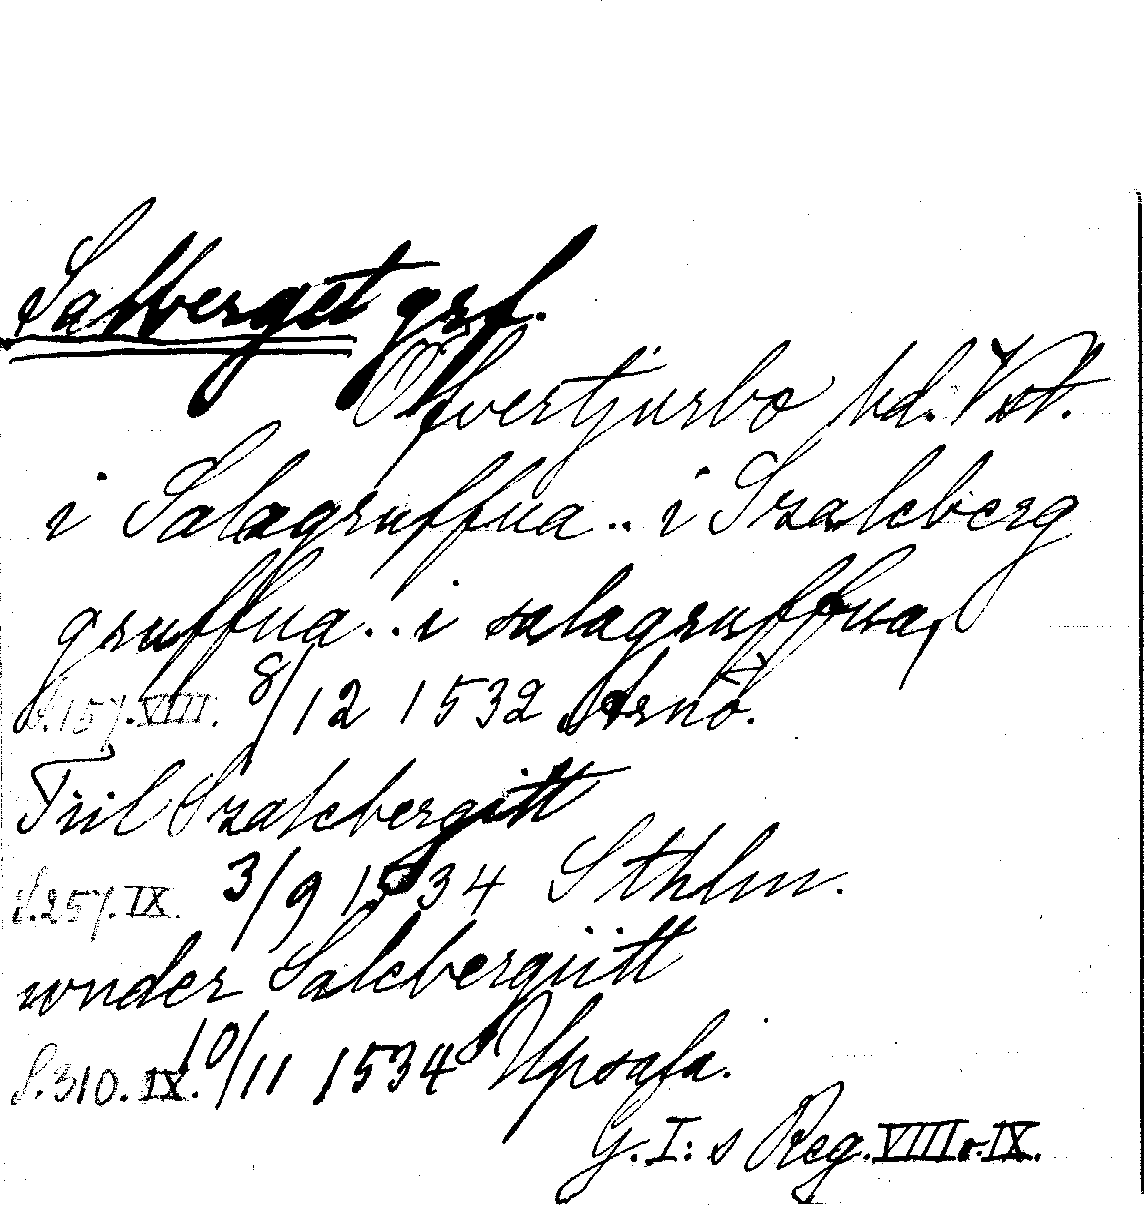 Salberget grf.
Öfvertjurbo hd. Vstl.
i Salagruffua .. i Szaleberg
gruffua .. i salagruffua,
S.157. VIII. 8/12 1532 Arnö.
Tiil Szalebergitt
S.257. IX. 3/9 1534 Sthlm.
wnder Salebergiitt
S.310. IX. 10/11 1534 Upsala.
G. I: s Reg. VIII o. IX.